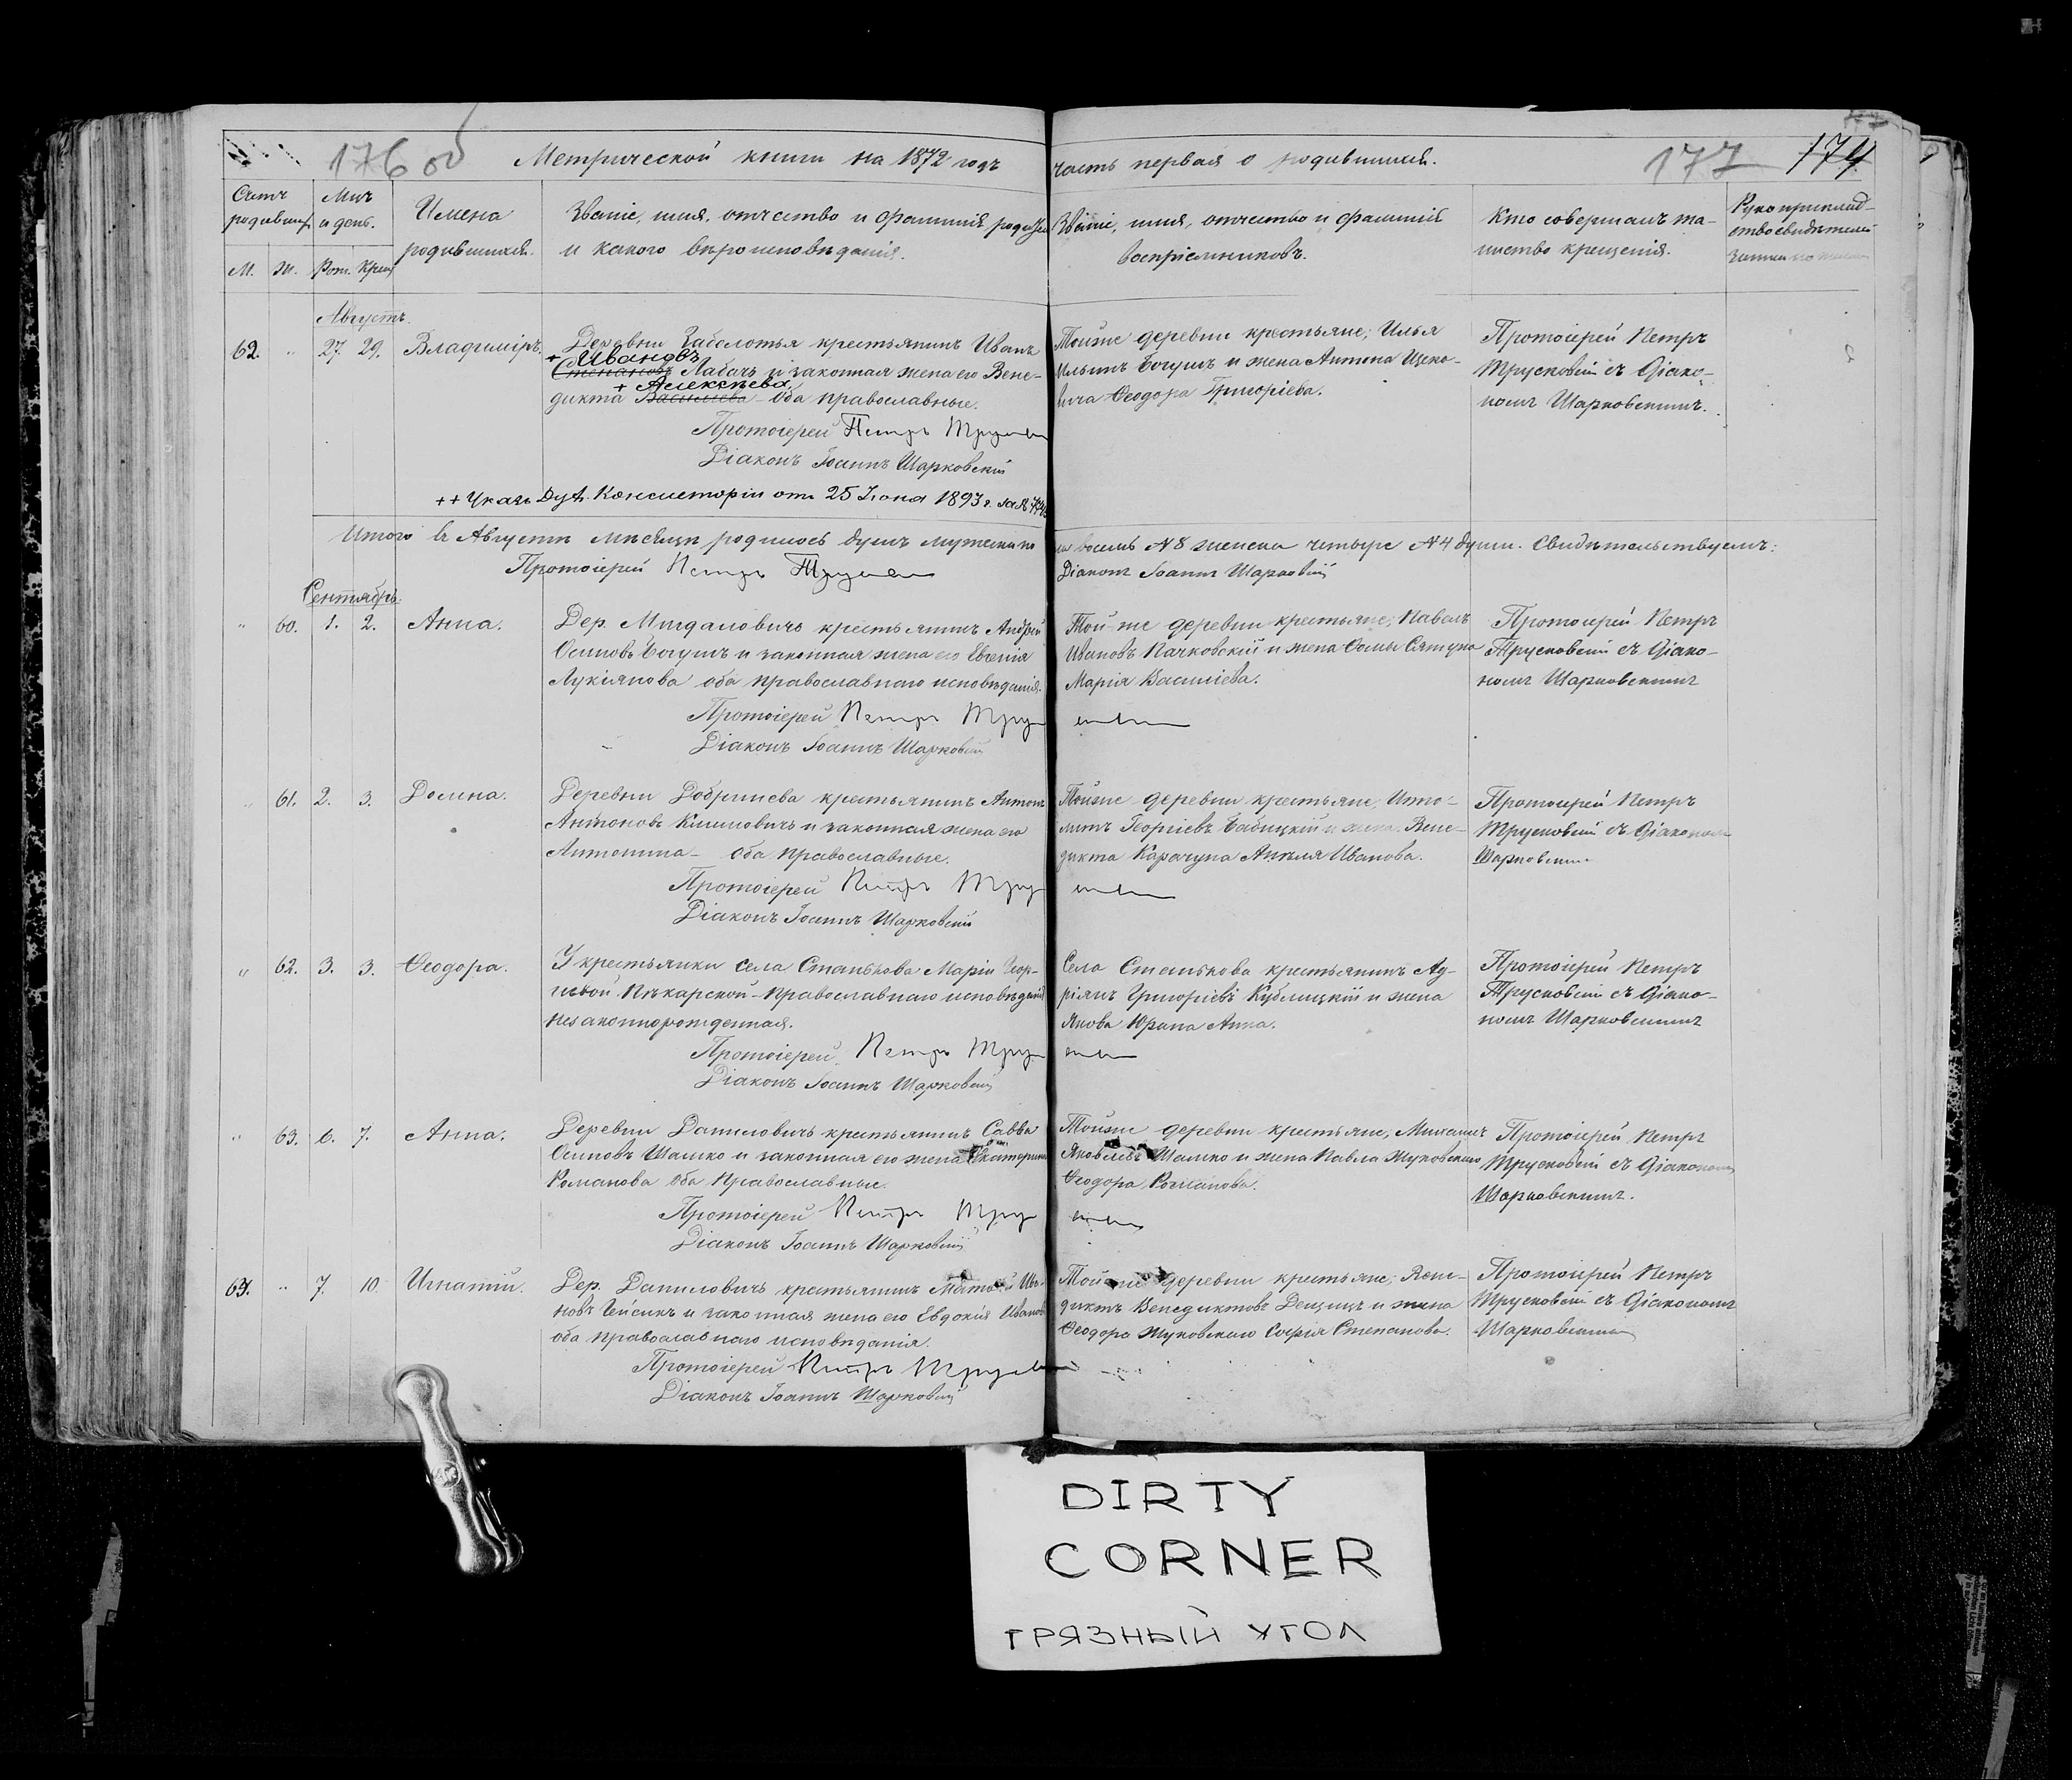 176 об
Метрической книги на 1872 годъ часть первая о родившихся.
177 174
Счетъ родившихся
М. Ж.
Мѣц. и день.
Рож. Крещ.
Имена родившихся.
Званіе, имя, отчество и фамилія родителей
и какого вѣроисповѣданія.
Званіе, имя, отчество и фамилія
воспріемниковъ.
Кто совершалъ та-
инство крещенія.
Рукоприклад-
ство свидѣтелей
Августъ.
62. " 27. 29. Владиміръ.
Деревни Заболотья крестьянинъ Иванъ
+ Ивановъ
Степановъ Лабачъ и законная жена его Вене-
+ Алексѣева
дикта Васильева - оба православные.
Протоіерей Петръ
Діаконъ Іоаннъ Шарковскій
++ Указъ Дух. Консисторіи отъ 25 Іюня 1893 г. за №
Тойже деревни крестьяне, Илья
Ильинъ Богушъ и жена Антона
Ѳеодора Григоріева.
Протоіерей Петръ
Трусковскій съ діако-
номъ Шарковскимъ.
Итого въ Августѣ мѣсяцѣ родилось душъ мужеска по-
ла восемь №8 женска четыре №4 души. Свидѣтельствуемъ:
Протоіерей Петръ
Діаконъ Іоаннъ Шарковскій
Сентябрь.
" 60. 1. 2. Анна.
Дер. Мигдаловичъ крестьянинъ Андрей
Осиповъ Богушъ и законная жена его Евгенія
Лукіянова оба православнаго исповѣданія.
Протоіерей Петръ
Діаконъ Іоаннъ Шарковскій
Той-же деревни крестьяне, Павелъ
Ивановъ Пачковскій и жена Ѳомы
Марія Василіева.
Протоіерей Петръ
Трусковскій съ діако-
номъ Шарковскимъ
" 61. 2. 3. Домна.
Деревни Добринева крестьянинъ Антонъ
Антоновъ Климовичъ и законная жена его
Антонина - оба православные.
Протоіерей Петръ
Діаконъ Іоаннъ Шарковскій
Тойже деревни крестьяне, Иппо-
литъ Георгіевъ Бабицкій и жена Вене-
дикта Карачуна Анѣля Иванова.
Протоіерей Петръ
Трусковскій съ діакономъ
Шарковскимъ
" 62. 3. 3. Ѳеодора.
У крестьянки села Станькова Маріи Геор-
гіевой Пѣкарской - православнаго исповѣданія
незаконнорожденная.
Протоіерей Петръ
Діаконъ Іоаннъ Шарковскій
Села Станькова крестьянинъ Ад-
ріянъ Григоріевъ Кублицкій и жена
Якова Юрана Анна.
Протоіерей Петръ
Трусковскій съ діако-
номъ Шарковскимъ
" 63. 6. 7. Анна.
Деревни Даниловичъ крестьянинъ Савва
Осиповъ Шашко и законная его жена Екатерина
Романова оба православные.
Протоіерей Петръ
Діаконъ Іоаннъ Шарковскій
Тойже деревни крестьяне, Михаилъ
Яковлевъ Шашко и жена Павла Жуковскаго
Ѳеодора Романова.
Протоіерей Петръ
Трусковскій съ діакономъ
Шарковскимъ.
63. " 7. 10. Игнатій.
Дер. Даниловичъ крестьянинъ Матвей Ива-
новъ и законная жена его Евдокія Иванова
оба православнаго исповѣданія.
Протоіерей Петръ
Діаконъ Іоаннъ Шарковскій
Тойже деревни крестьяне, Вене-
диктъ Венедиктовъ Дещицъ и жина
Ѳеодора Жуковскаго Софія Степанова.
Протоіерей Петръ
Трусковскій съ діакономъ
Шарковскимъ
DIRTY
CORNER
ГРЯЗНЫЙ УГОЛ